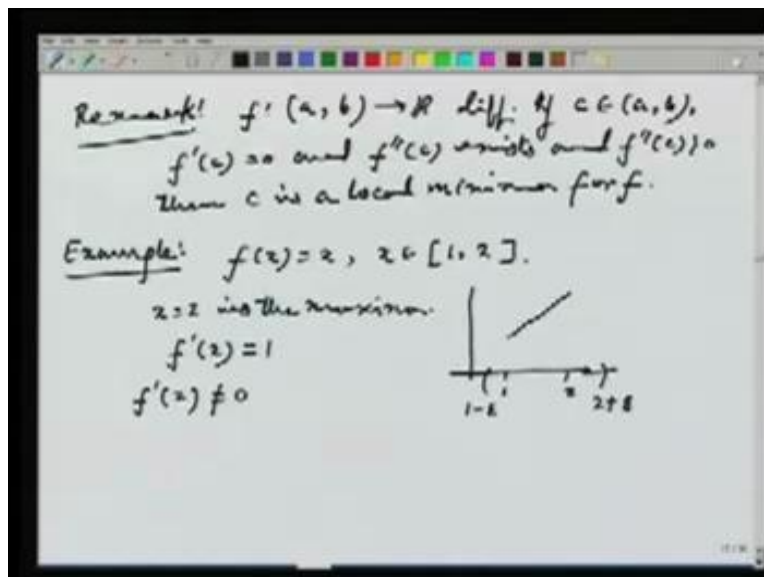 Remark: f: (a, b) → R diff. If c ∈ (a, b),
f'(c) = 0 and f''(c) exists and f''(c) > 0
then c is a local minimum for f.
Example: f(x) = x, x ∈ [1, 2].
x = 2 is the maximum.
f'(x) = 1
f'(2) ≠ 0
1-ε 1 2 2+ε